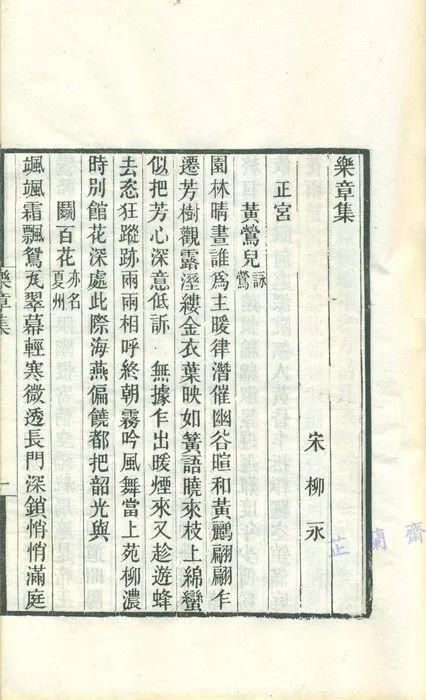 樂章集
宋柳永
正宮
黃鶯兒詠鶯
園林晴晝誰爲主暖律潛催幽谷暄和黃鸝翩翩乍
遷芳樹觀露溼縷金衣葉映如簧語曉來枝上綿蠻
似把芳心深意低訴 無據乍出暖煙來又趁遊蜂
去恣狂蹤跡兩兩相呼終朝霧吟風舞當上苑柳濃
時別館花深處此際海燕偏饒都把韶光與
鬭百花亦名夏州
颯颯霜飄鴛瓦翠幕輕寒微透長門深鎖悄悄滿庭
樂章集
一
芷蘭齋